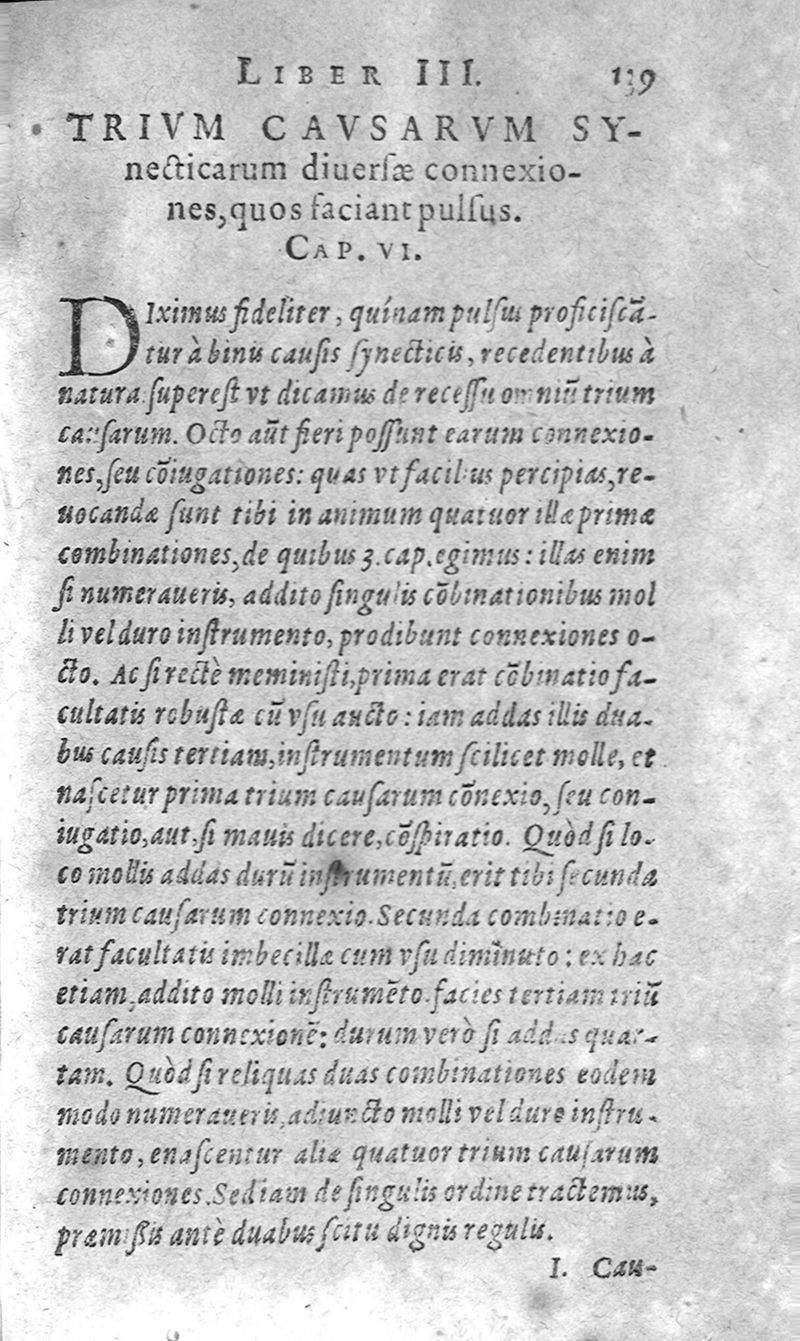 LIBER III. 139
TRIVM CAVSARVM SY-
necticarum diuersæ connexio-
nes, quos faciant pulsus.
CAP. VI.
DIximus fideliter, quínam pulsus proficiscā-
tur à binis causis synecticis, recedentibus à
natura: superest vt dicamus de recessu omniū trium
causarum. Octo aūt fieri possunt earum connexio-
nes, seu cōiugationes: quas vt facilius percipias, re-
uocandæ sunt tibi in animum quatuor illæ primæ
combinationes, de quibus 3. cap. egimus: illas enim
si numeraueris, addito singulis cōbinationibus mol
li vel duro instrumento, prodibunt connexiones o-
cto. Ac si rectè meministi, prima erat cōbinatio fa-
cultatis robustæ cū vsu aucto: iam addas illis dua-
bus causis tertiam, instrumentum scilicet molle, et
nascetur prima trium causarum cōnexio, seu con-
iugatio, aut, si mauis dicere, cōspiratio. Quòd si lo-
co mollis addas durū instrumentū, erit tibi secunda
trium causarum connexio. Secunda combinatio e-
rat facultatis imbecillæ cum vsu diminuto: ex hac
etiam, addito molli instrumēto. facies tertiam triū
causarum connexionē: durum verò si addas quar-
tam. Quòd si reliquas duas combinationes eodem
modo numeraueris, adiuncto molli vel duro instru-
mento, enascentur aliæ quatuor trium causarum
connexiones. Sed iam de singulis ordine tractemus,
præmissis antè duabus scitu dignis regulis.
I. Cau-